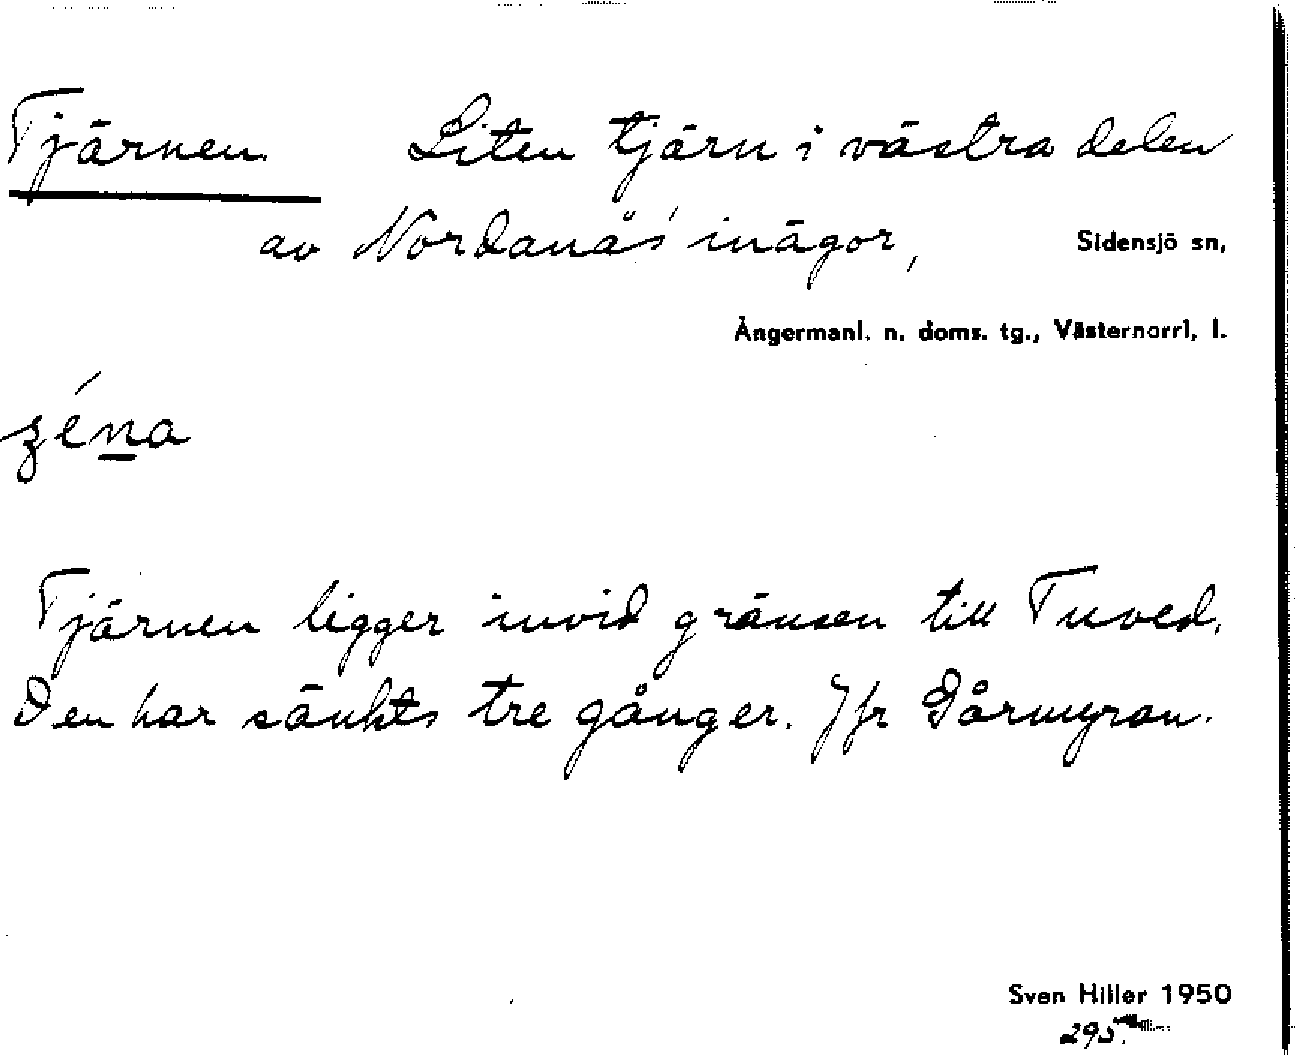 Tjärnen. Liten tjärn i västra delen
av Nordanås' inägor, Sidensjö sn,
Ångermanl. n. doms. tg., Västernorrl. l.
Tjärnen ligger invid gränsen till Tuved.
Den har sänkts tre gånger. Jfr Dårmyran.
Sven Hiller 1950
295.